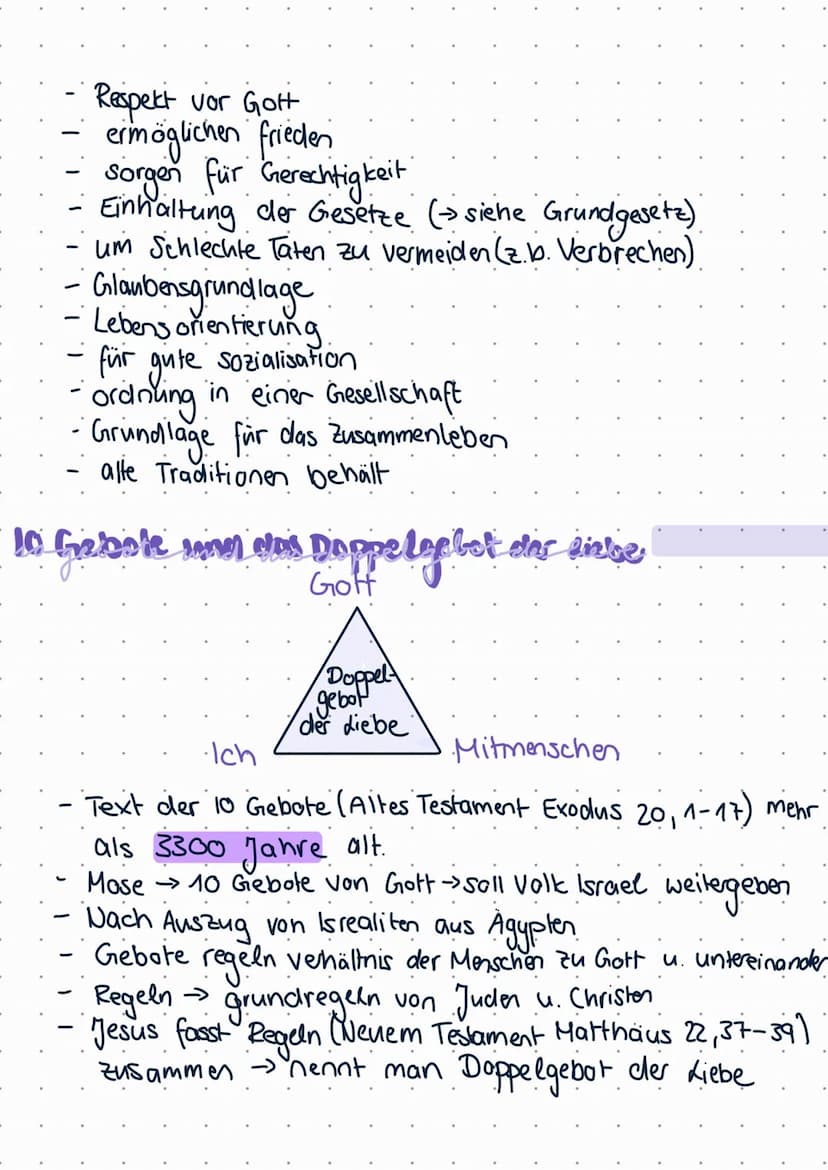 - Respekt vor Gott
- ermöglichen frieden
- sorgen für Gerechtigkeit
- Einhaltung der Gesetze (→ siehe Grundgesetz)
- um Schlechte Taten zu vermeiden (z.b. Verbrechen)
- Glaubensgrundlage
- Lebensorientierung
- für gute sozialisation
- ordnung in einer Gesellschaft
- Grundlage für das Zusammenleben
- alte Traditionen behält
10 Gebote und das Doppelgebot der liebe
Gott
Doppel-
gebot
der Liebe
Ich
Mitmenschen
- Text der 10 Gebote (Altes Testament Exodus 20, 1-17) mehr
als 3300 Jahre alt.
- Mose → 10 Gebote von Gott → soll Volk Israel weitergeben
- Nach Auszug von Isrealiten aus Ägypten
- Gebote regeln verhältnis der Menschen zu Gott u. untereinander
- Regeln → grundregeln von Juden u. Christen
- Jesus fasst Regeln (Neuem Testament Matthäus 22, 37-39)
zusammen → nennt man Doppelgebot der Liebe